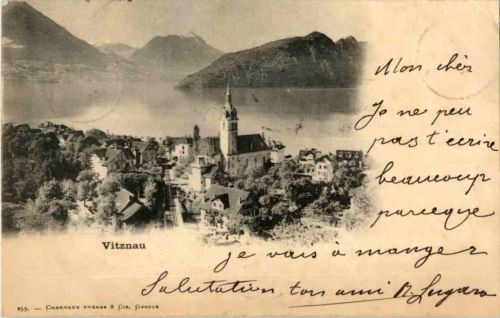 Mon chèr
Je ne peu
pas t'ecrire
beaucoup
parceque
je vais à manger
Salutation ton ami R. Lugaro
Vitznau
253. — CHARNAUX FRÈRES & CIE, GENÈVE